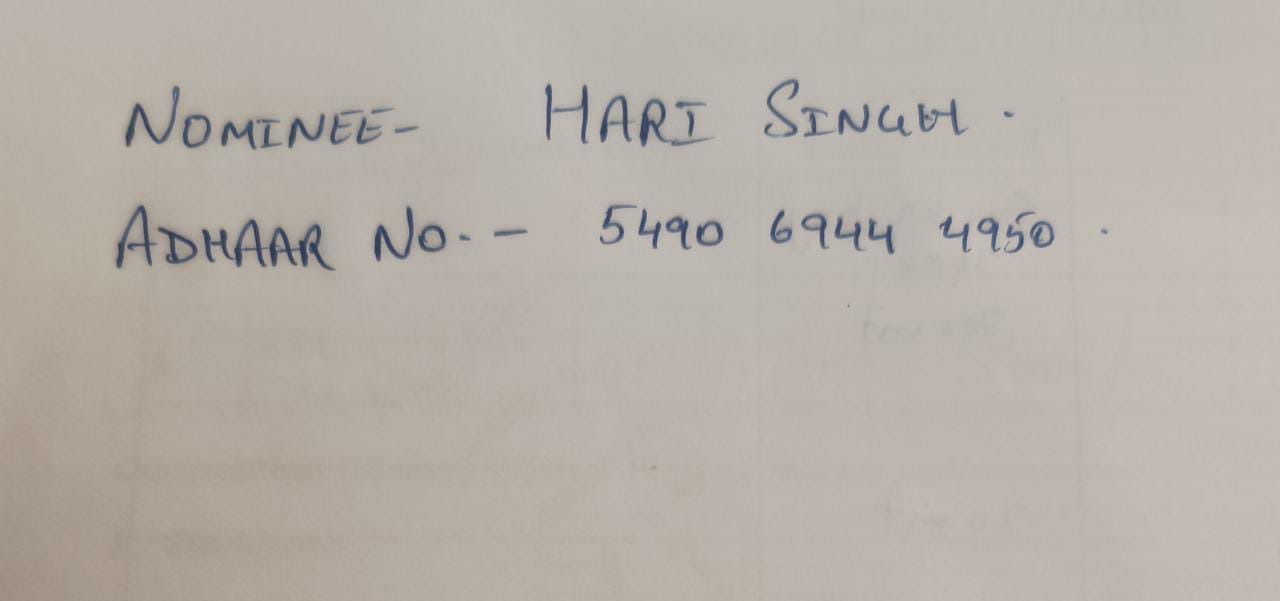 NOMINEE- HARI SINGH.
ADHAAR NO. - 5490 6944 4950.